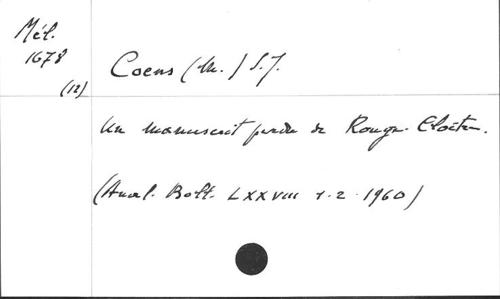 Mél.
1678
(12)
Coens (M.) S.J.
Un manuscrit perdu de Rouge-Cloître.
(Anal. Boll. LXXVIII 1-2 1960)